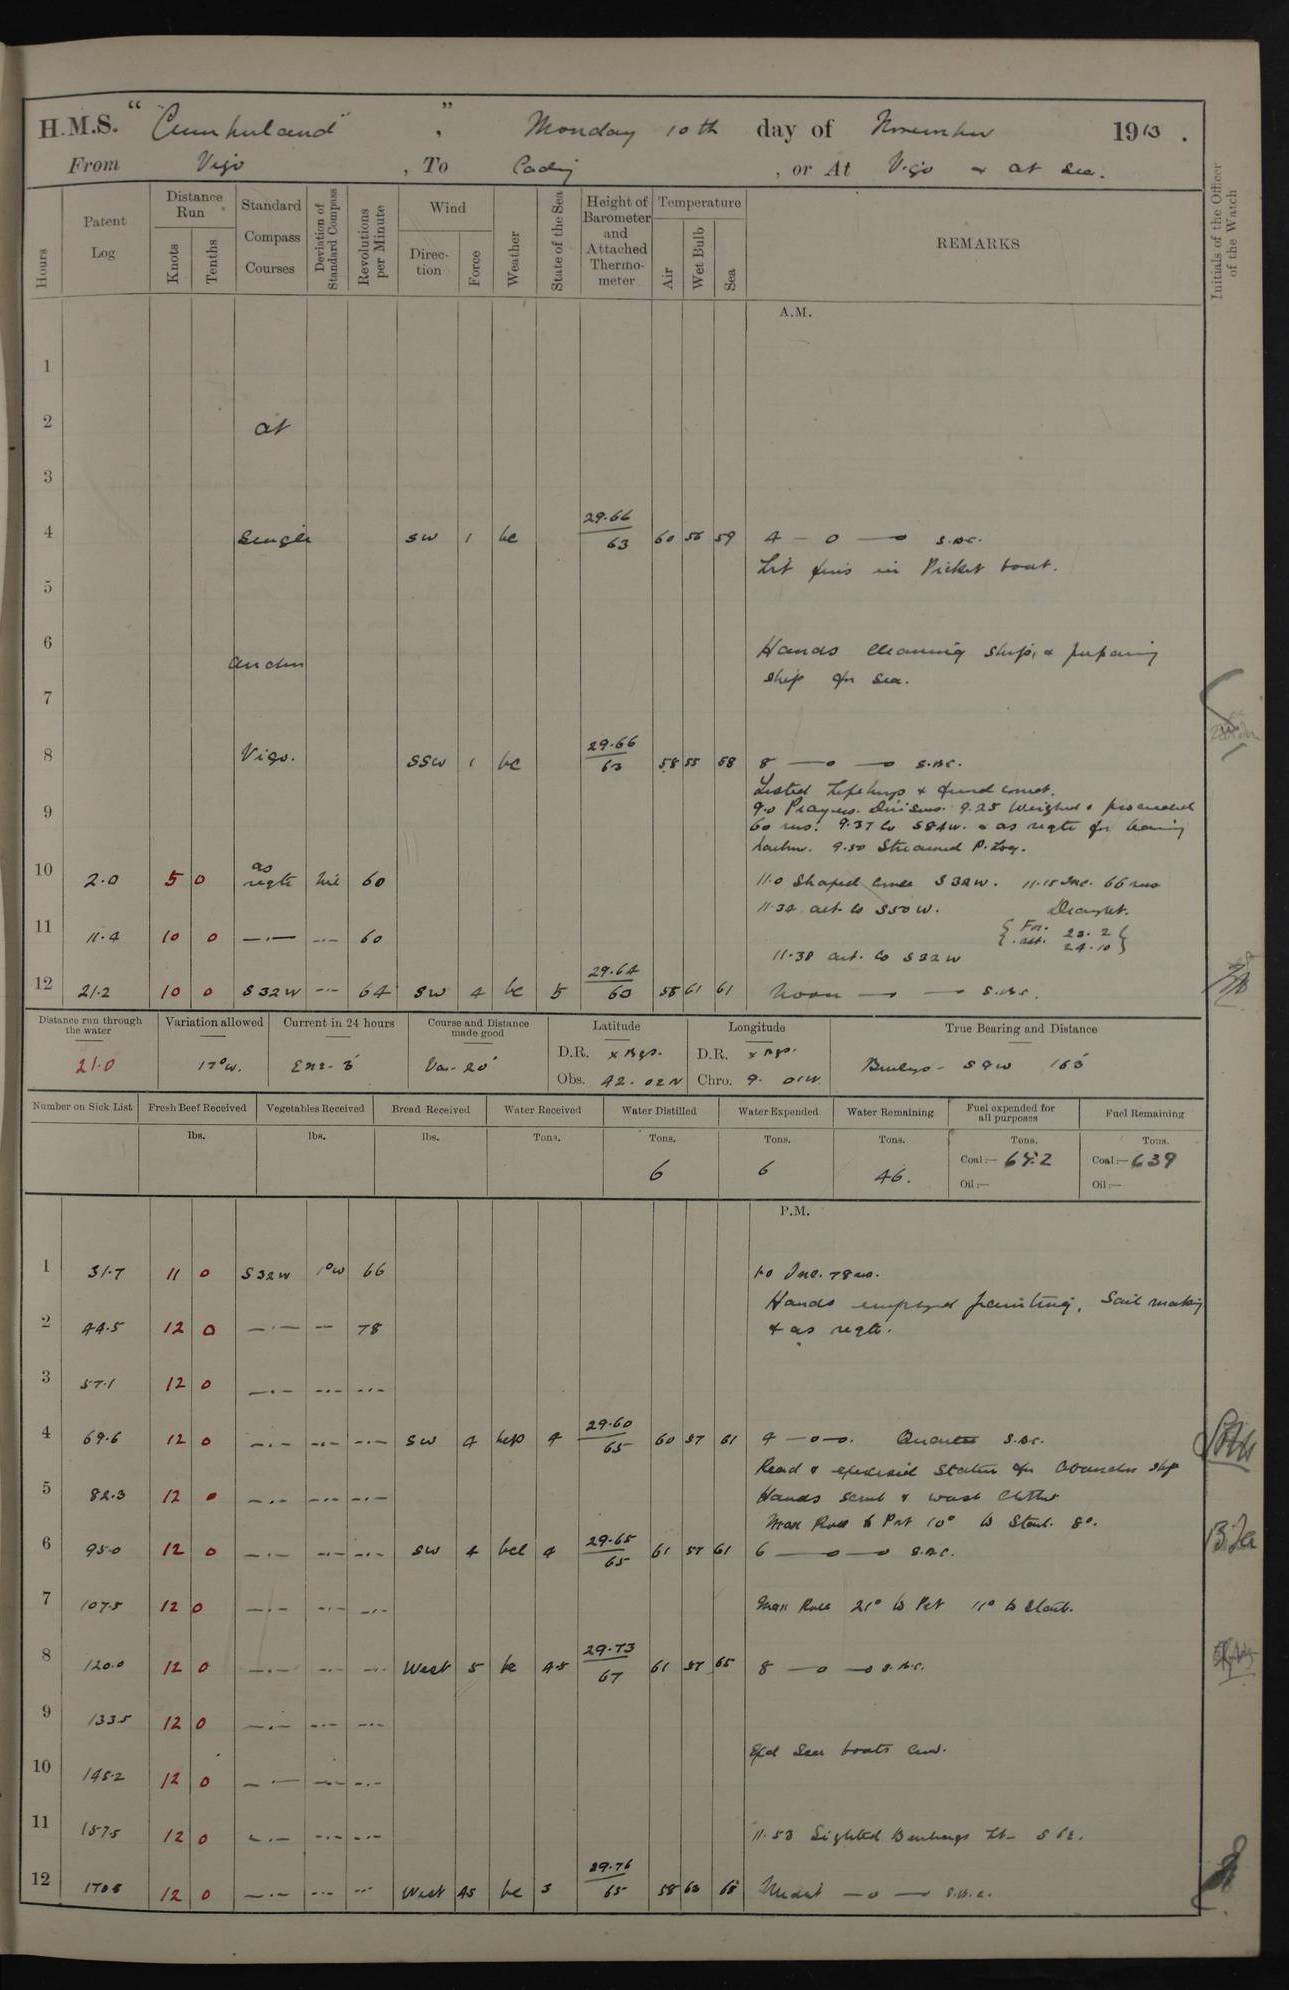 H.M.S. "Cumberland", Monday 10th day of November 1913.
From Vigo, To Cadiz, or At Vigo & at sea.
Hours
Patent Log
Distance Run
Knots
Tenths
Standard Compass Courses
Deviation of Standard Compass
Revolutions per Minute
Wind
Direction
Force
Weather
State of the Sea
Height of Barometer and Attached Thermometer
Temperature
Air
Wet Bulb
Sea
REMARKS
Initials of the Officer of the Watch
A.M.
1
2 at
3
4 Single SW 1 bc 29.66 63 60 56 59 4 — o — o S.B.C.
Lit fires in Picket boat.
5
6 anchor Hands cleaning ship, & preparing
ship for sea.
7
8 Vigo. SSW 1 bc 29.66 63 58 55 58 8 — o — o S.B.C.
Tested Life buoys &
9 9.0 Prayers. Divisions. 9.25 Weighed & proceeded
60 revs. 9.37 Co S84W. & as reqte for leaving
harbour. 9.50 Streamed P. Log.
10 2.0 5 0 as reqte 60 11.0 Shaped course S32W. 11.15 Inc. 66 revs
11.34 alt. Co S50W. Draught.
11 11.4 10 0 — . — 60 For. 23.2
aft. 24.10
11.38 alt. Co S32W
12 21.2 10 0 S32W 64 SW 4 bc 5 29.64 60 58 61 61 Noon — — S.B.C.
Distance run through the water 21.0
Variation allowed 17°W.
Current in 24 hours
Course and Distance made good
Latitude
D.R.
Obs. 42.02N
Longitude
D.R.
Chro. 9. 01W
True Bearing and Distance
Number on Sick List
Fresh Beef Received lbs.
Vegetables Received lbs.
Bread Received lbs.
Water Received Tons.
Water Distilled Tons. 6
Water Expended Tons. 6
Water Remaining Tons. 46.
Fuel expended for all purposes Tons.
Coal:—
Oil:—
Fuel Remaining Tons.
Coal:— 639
Oil:—
P.M.
1 31.7 11 0 S32W 1°W 66 1.0 Inc. 78 revs.
Hands employed painting, Sail making
2 44.5 12 0 — . — 78 & as reqte.
3 57.1 12 0 — . —
4 69.6 12 0 — . — SW 4 bcp 4 29.60 65 60 57 61 4 — o — o. Quarters S.B.C.
Read & exercised Station for Abandon ship
5 82.3 12 0 — . — Hands scrub & wash clothes
Max Roll to Port 10° to Starb. 8°.
6 95.0 12 0 — . — SW 4 bcl 4 29.65 65 61 57 61 6 — o — o S.B.C.
7 107.5 12 0 — . — Max Roll 21° to Port 11° to Starb.
8 120.0 12 0 — . — West 5 bc 4.5 29.73 67 61 57 65 8 — o — o S.B.C.
9 133.5 12 0 — . —
Exd Sea boats crew.
10 145.2 12 0 — . —
11 157.5 12 0 — . — 11.53 Sighted Burlings Lt
12 170.5 12 0 — . — West 4.5 bc 3 29.76 65 58 Midnt — o — S.B.C.